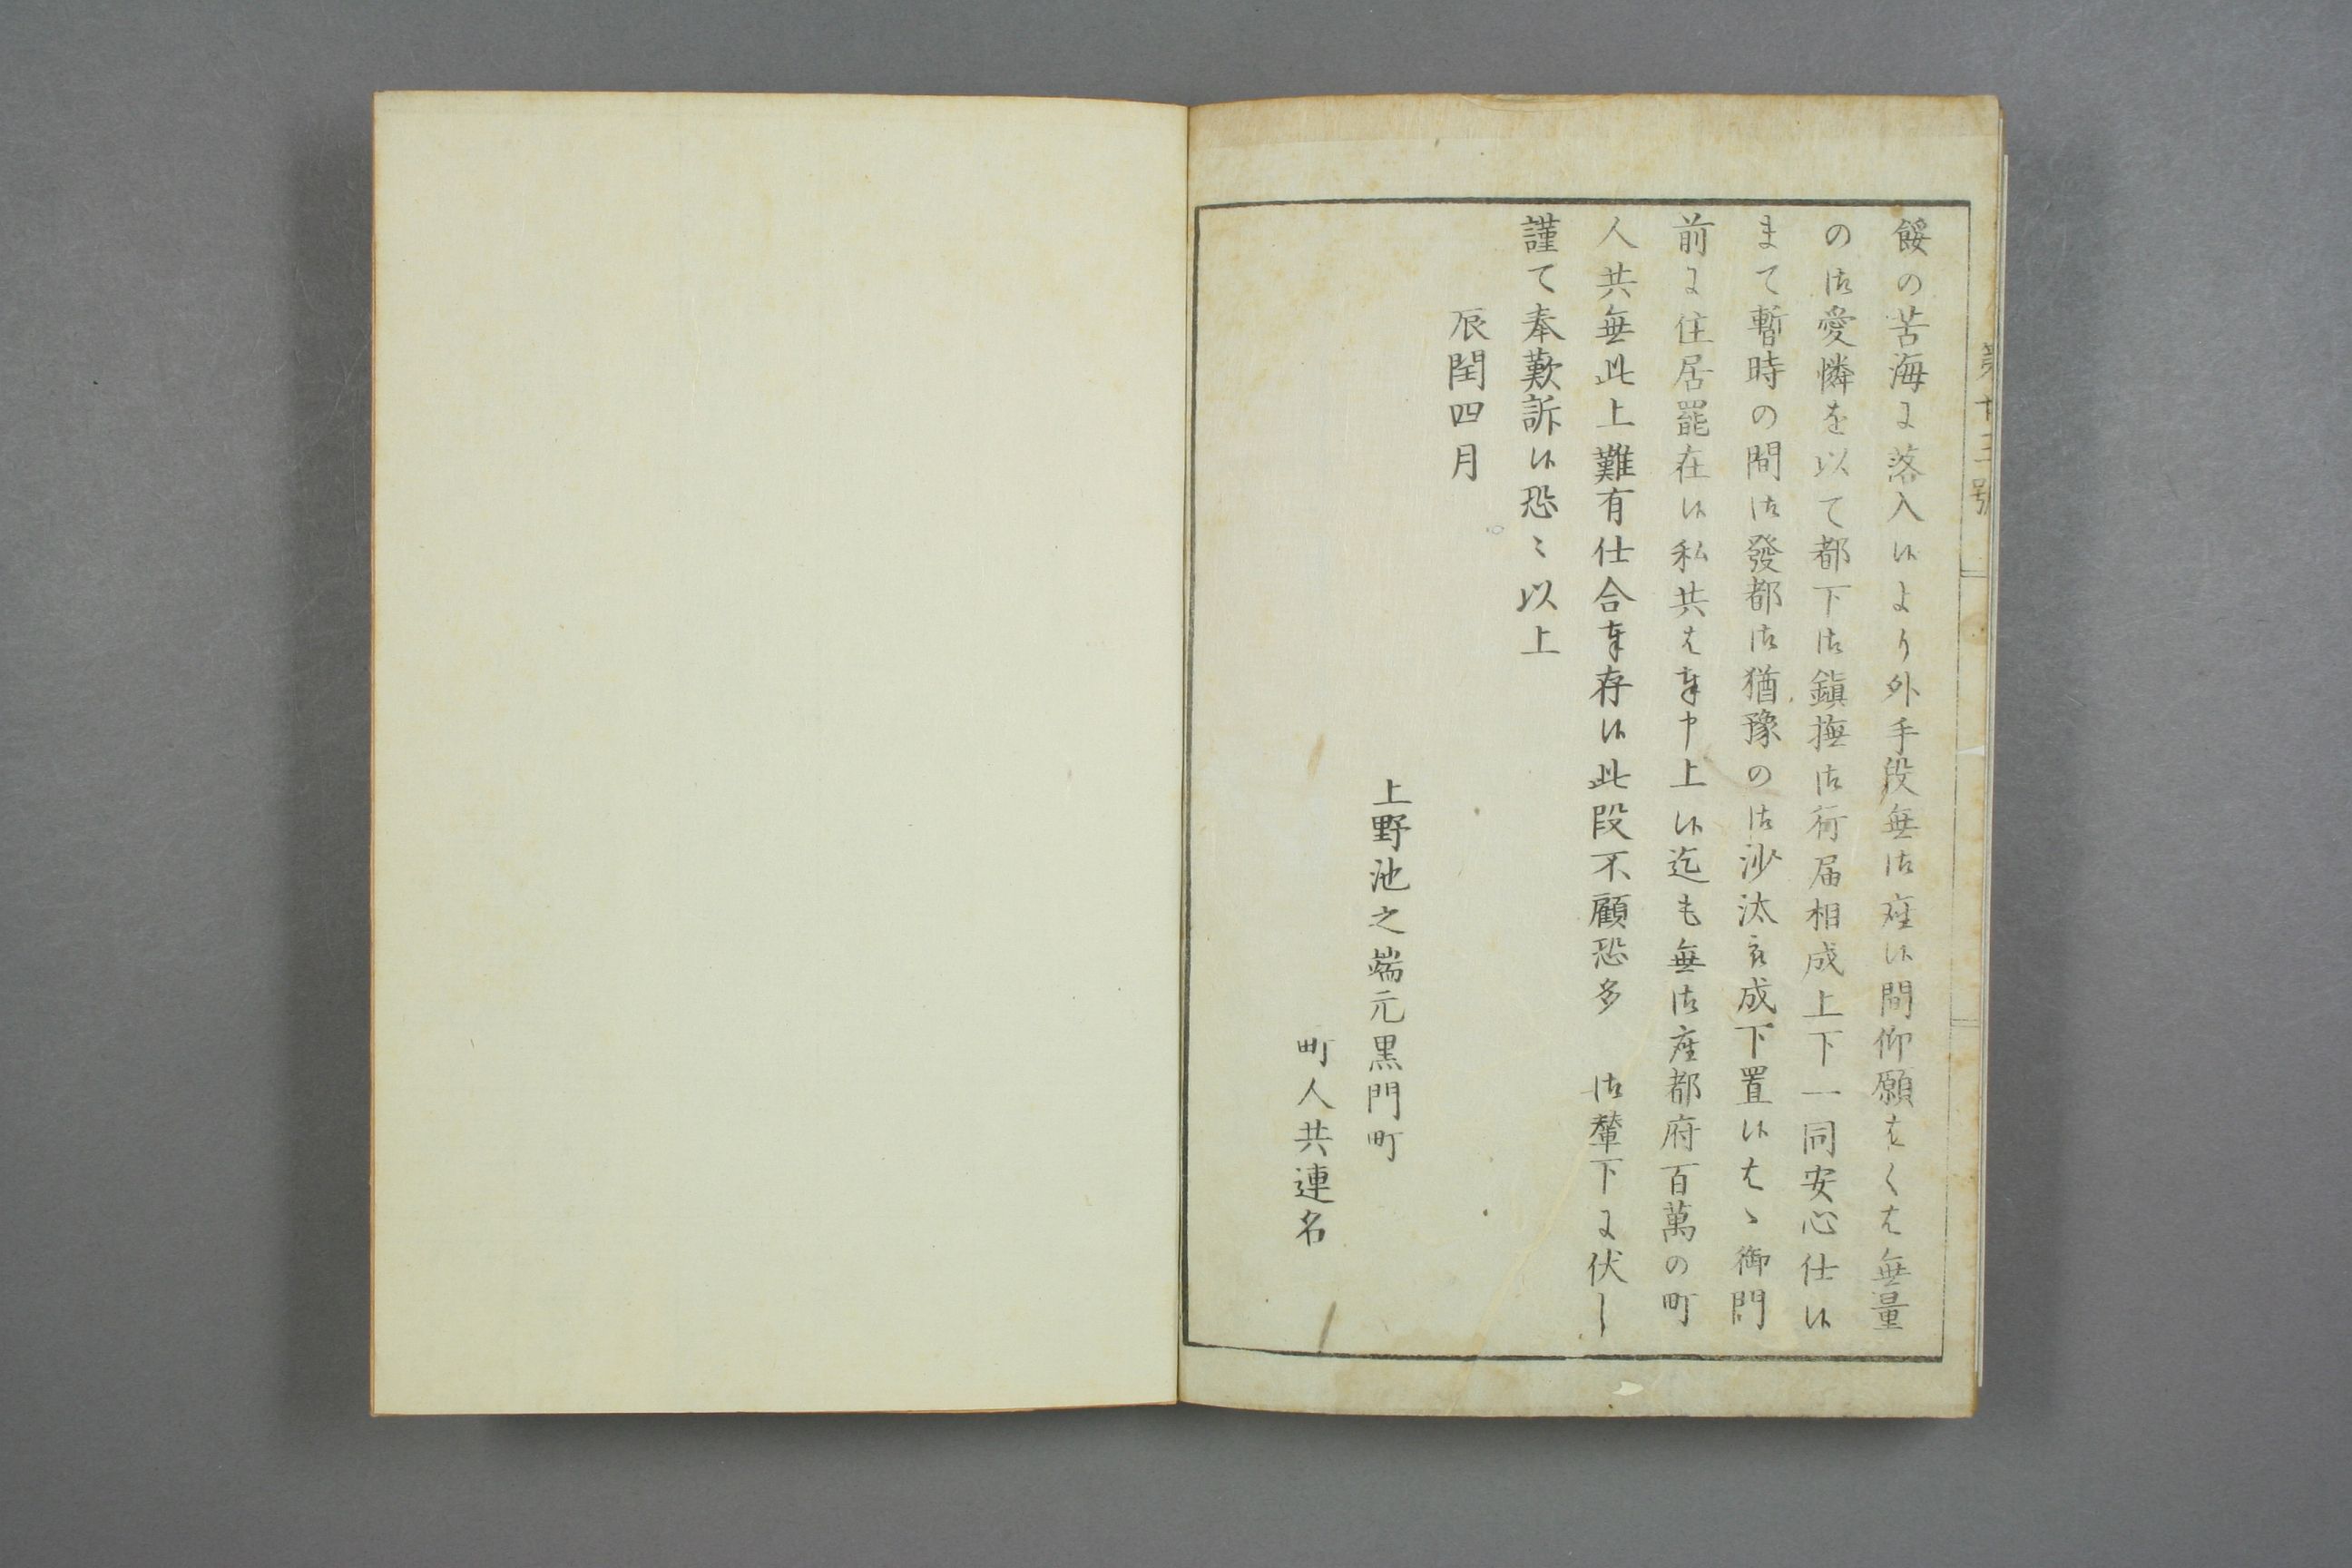 第廿三號
餒の苦海に落入候より外手段無御座候間仰願はくは無量
の御愛憐を以て都下御鎮撫御行届相成上下一同安心仕候
まて暫時の間御發都御猶豫の御沙汰被成下置候はゝ御門
前に住居罷在候私共は奉申上候迄も無御座都府百萬の町
人共無此上難有仕合奉存候此段不顧恐多　御輦下に伏し
謹て奉歎訴候恐〻以上
辰閏四月
上野池之端元黒門町
町人共連名